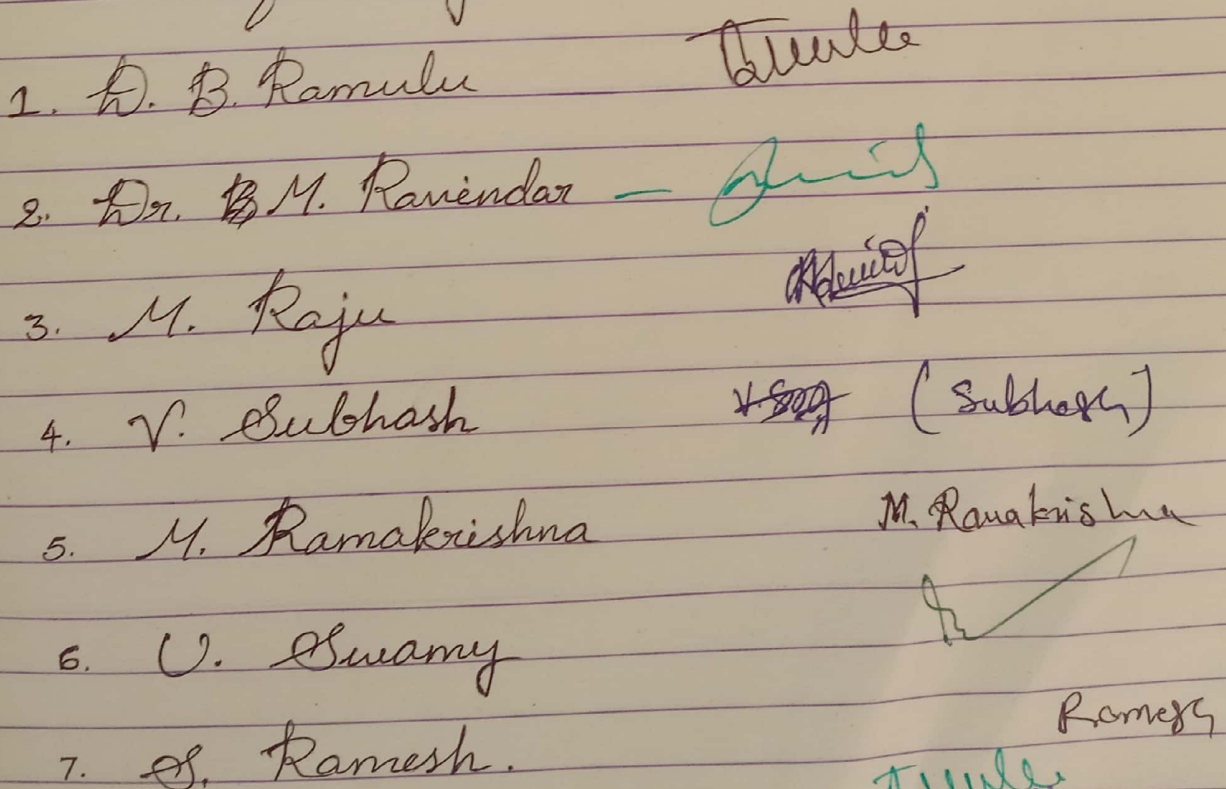 1. D. B. Ramulu
2. Dr. M. Ravendar —
3. M. Raju
4. V. Subhash (Subhash)
5. M. Ramakrishna M. Ramakrishna
6. U. Swamy
7. S. Ramesh. Ramesh